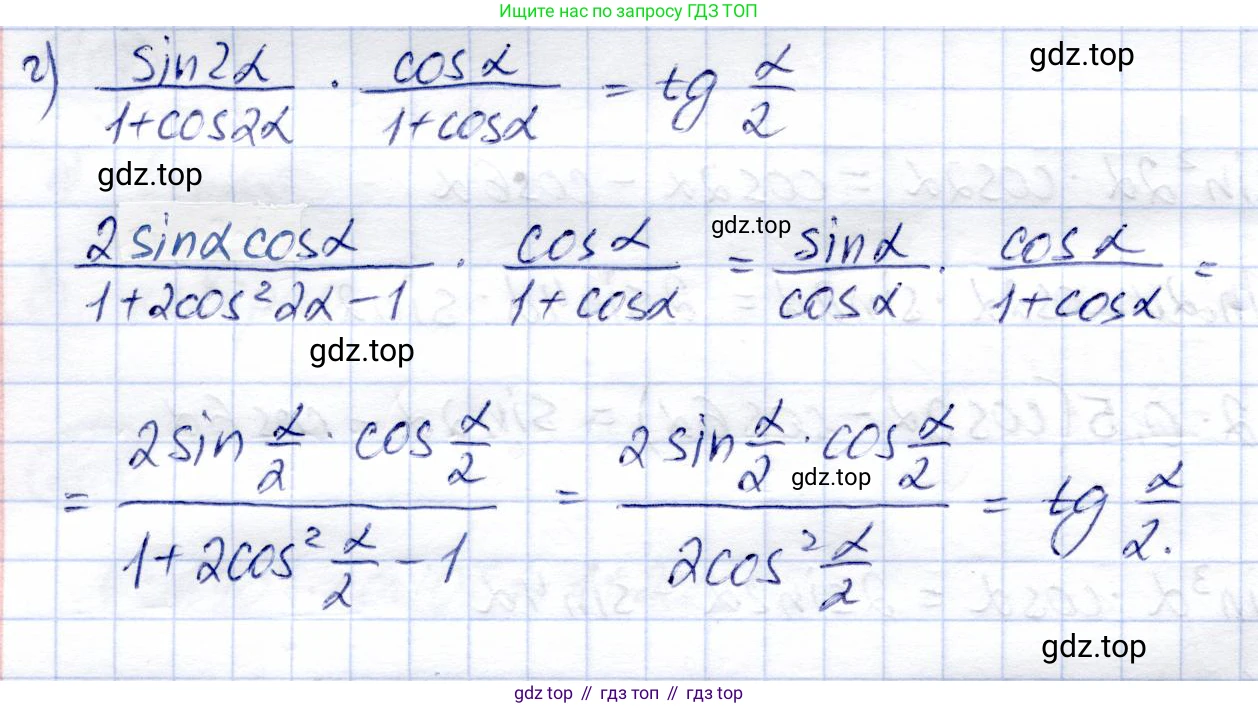 Ищите нас по запросу ГДЗ ТОП
г) sin2α/(1+cos2α) · cosα/(1+cosα) = tg α/2
gdz.top
gdz.top
2sinαcosα/(1+2cos²2α−1) · cosα/(1+cosα) = sinα/cosα · cosα/(1+cosα) =
gdz.top
gdz.top
= (2sin α/2 · cos α/2)/(1+2cos² α/2 −1) = (2sin α/2 · cos α/2)/(2cos² α/2) = tg α/2.
gdz.top
gdz.top
gdz top // гдз топ // gdz top